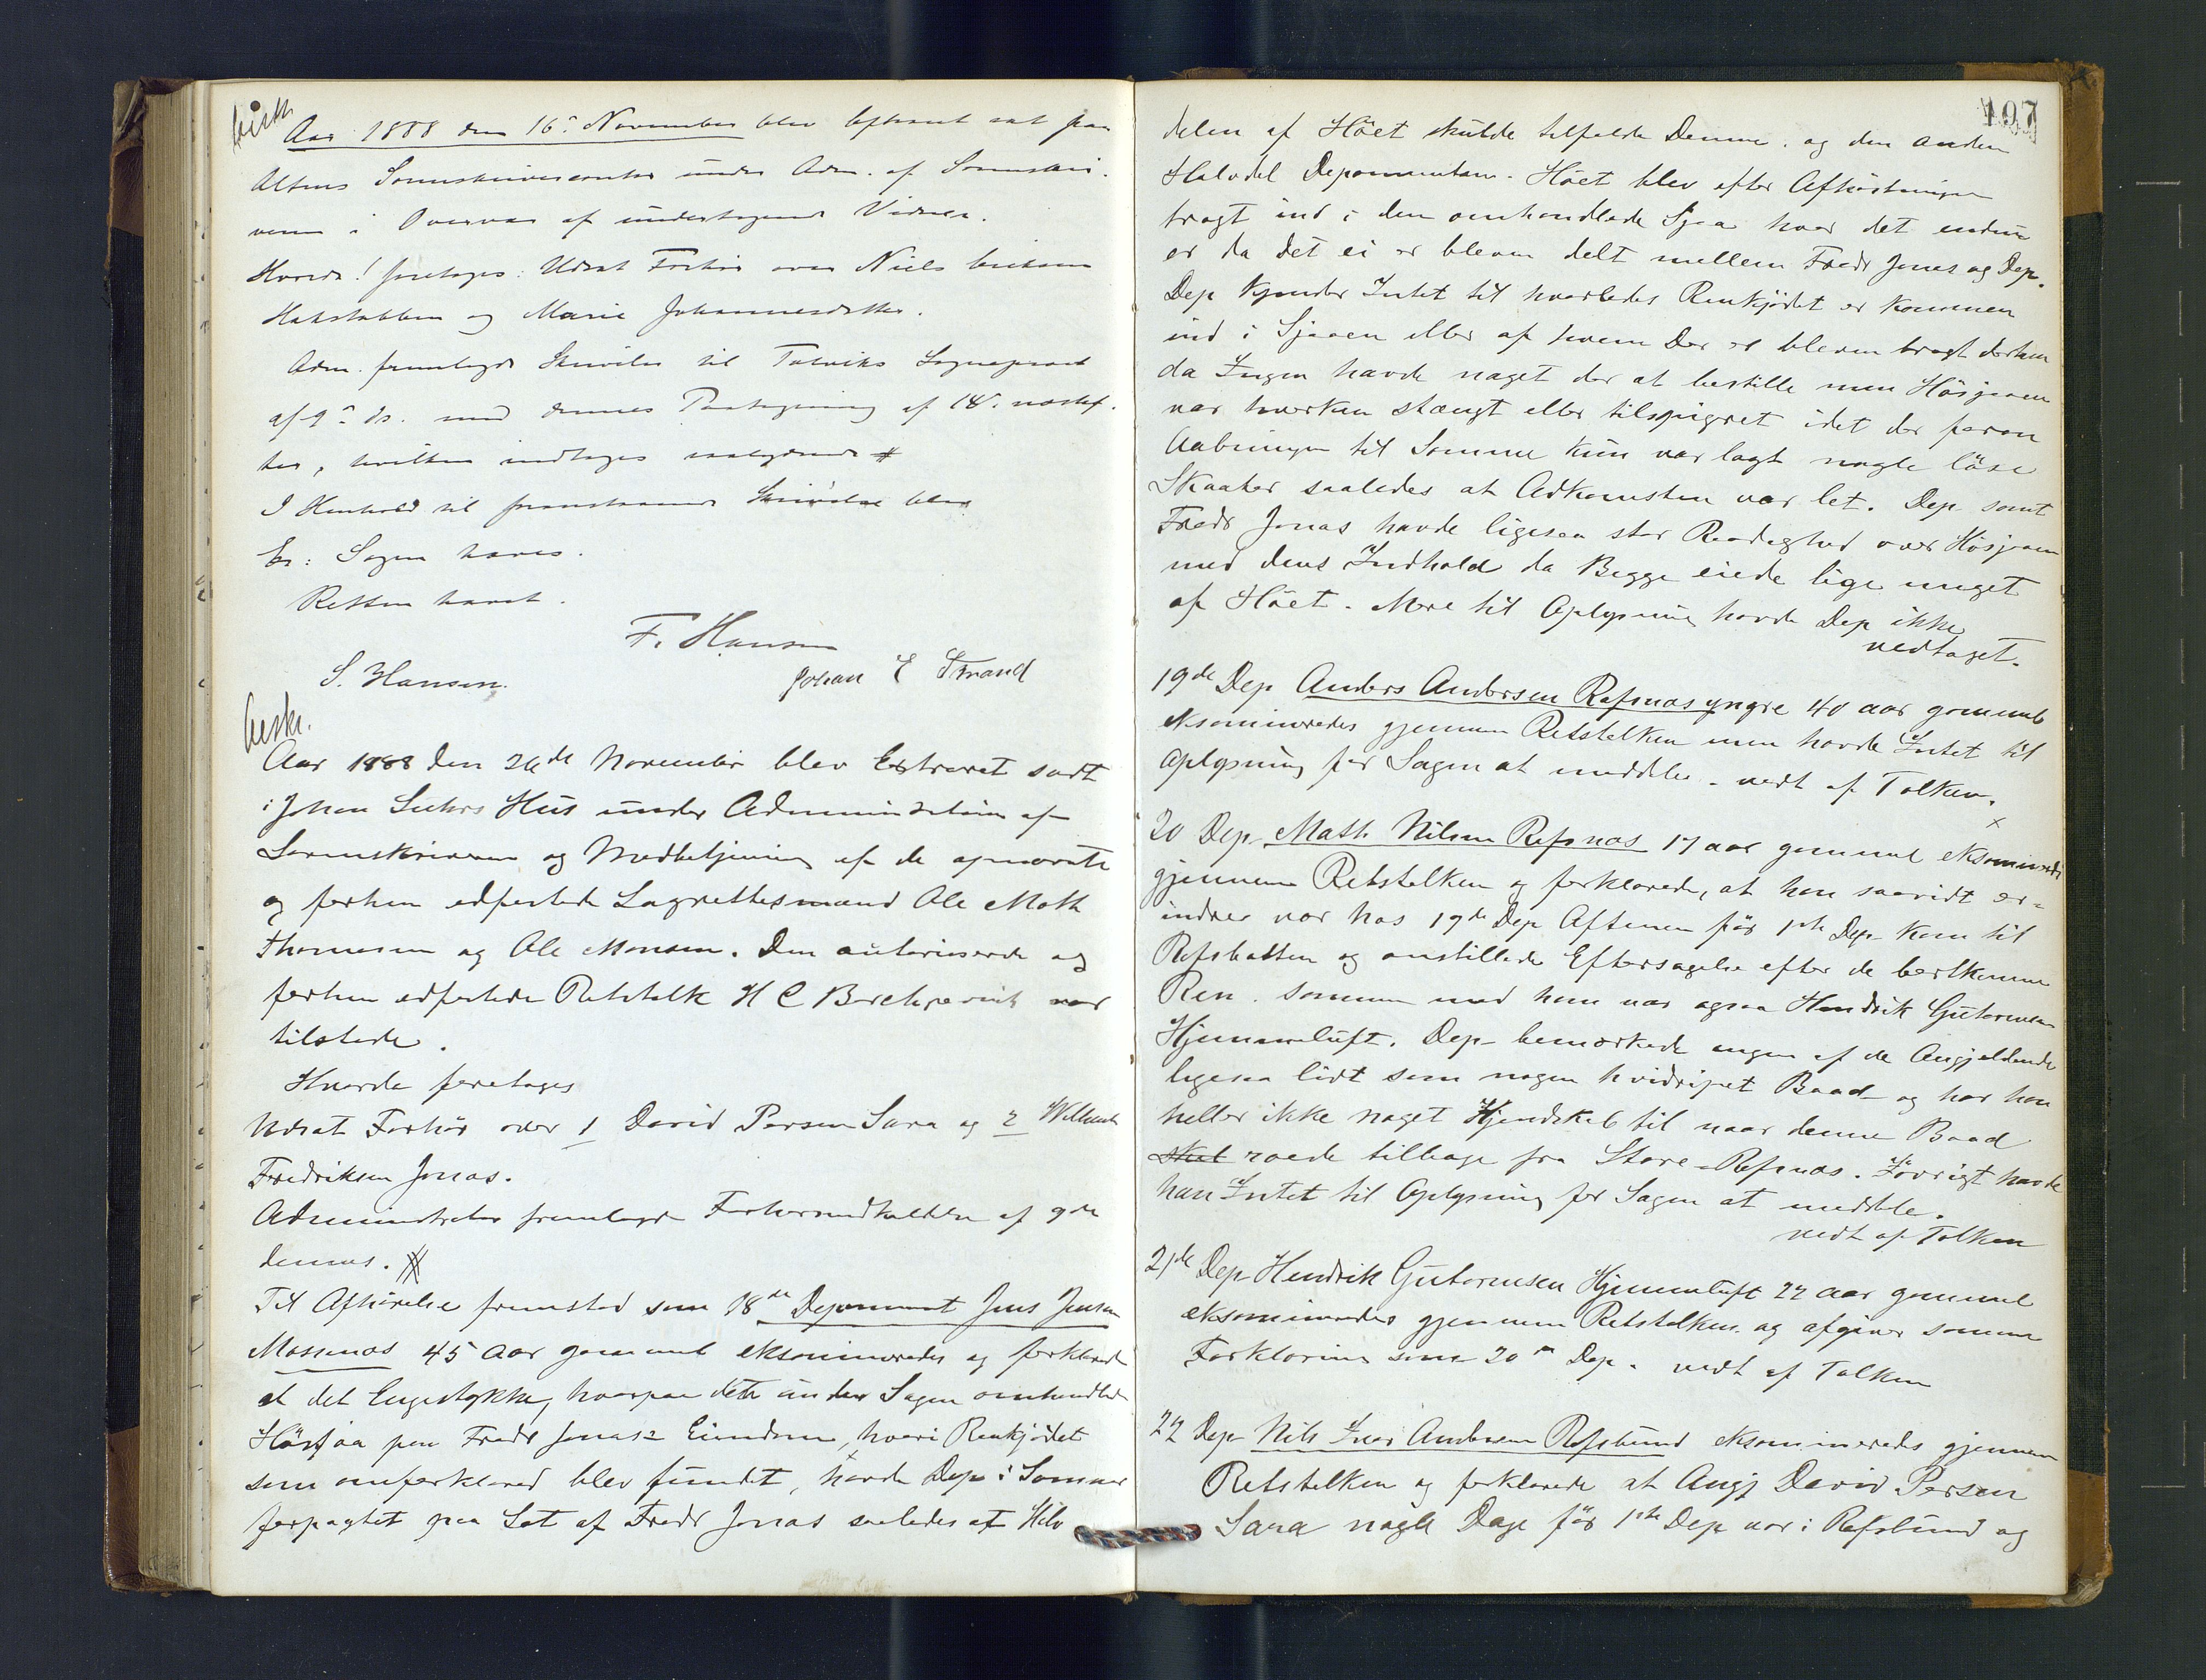 beskr
Aar 1888 den 16de November blev Extraret sat paa
Altens Sorenskriverkontor under Adm. af Sorenskri-
veren i Overvær af undertegnede Vidner.
Hvorda! foretoges: Udsat Forhør over Niels Eriksen
og Marie Johannesdatter.
Adm. fremlagde Skrivelse til Talviks Sogneprest
af 9de ds. med dennes Paategning af 14. næstef-
ter, hvilken indtages saalydende #
I Henhold til foranstaaende Skrivelse blev
Er: Sagen hæves.
Retten hævet.
F. Hansen
S. Hansen.
Johan E Strand
beskr.
Aar 1888 den 26de November blev Extraret sadt
i Johan Suhrs Hus under Administration af
Sorenskriveren og Medbetjening af de opnævnte
og forhen edfæstede Lagrettesmænd Ole Math
Thomesen og Ole Monsen. Den autoriserede og
forhen edfæstede Retstolk H C var
tilstede.
Hvorda foretoges
Udsat Forhør over 1 David Persen Sara og 2
Fredriksen Jonas.
Administrator fremlagde Forhørsudholdelse af 9de
dennes. #
Til Afhørelse fremstod som 18de Deponent Jens Jensen
Mossenæs 45 Aar gammel eksamineredes og forklarede
at det Engestykke, hvorpaa dette under Sagen omhandlede
Høsjaa paa Fredr Jonas's Eiendom, hvori Renkjødet
som omforklared blev fundet, havde Dep i Sommer
forpagtet paa Lot af Fredr Jonas saaledes at Hilv
107
delen af Høet skulde tilfalde Denne, og den anden
Halvdel Deponenten. Høet blev efter Afhøstningen
bragt ind i den omhandlede Sjaa hvor det endnu
er da det ei er bleven delt mellem Fredr Jonas og Dep.
Dep kjender Intet til hvorledes Renkjødet er kommen
ind i Sjaaen eller af hvem Der er bleven bragt derhen
da Ingen havde noget der at bestille men Høsjaaen
var hverken stængt eller tilspigret idet der foran
Aabningen til Samme kun var lagt nogle løse
Skaaker saaledes at Adkomsten var let. Dep samt
Fredr Jonas havde ligesaa stor Raadighed over Høsjaaen
med dens Indhold da Begge eiede lige meget
af Høet. Mere til Oplysning havde Dep ikke
vedtaget.
19de Dep Anders Andersen Rafsnæs yngre 40 aar gammel
eksamineredes gjennem Retstolken men havde Intet til
Oplysning for Sagen at meddele. vedt af Tolken.
20 Dep Math Nilsen Refsnæs 17 aar gammel eksamineredes
gjennem Retstolken og forklarede, at han saavidt er-
indrer var hos 19de Dep Aftenen før 1ste Dep kom til
Refsbotten og anstillede Eftersøgelse efter de bortkomne
Ren. Sammen med ham var ogsaa Hendrik Gutormsen
Hjemmeluft. Dep bemærkede ingen af de Angjeldende
ligesaa lidt som nogen hvidripet Baad og har han
heller ikke noget Kjendskab til naar denne Baad
skal roede tilbage fra Store-Refsnæs. Iøvrigt havde
han Intet til Oplysning for Sagen at meddele.
vedt af Tolken
21de Dep Hendrik Gutormsen Hjemmeluft 22 aar gammel
eksamineredes gjennem Retstolken og afgiver samme
Forklaring som 20de Dep. vedt af Tolken
22 Dep Nils Iver Andersen Refsbund eksamineredes gjennem
Retstolken og forklarede at Angj David Persen
Sara nogle Dage før 1ste Dep var i Refsbund og